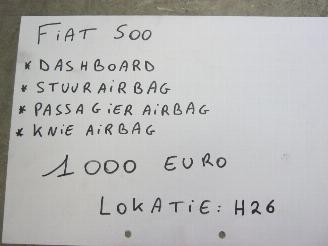 FiAT 500
* DASHBOARD
* STUURAiRBAG
* PASSAGiER AiRBAG
* KNiE AiRBAG
1000 EURO
LOKATiE: H26